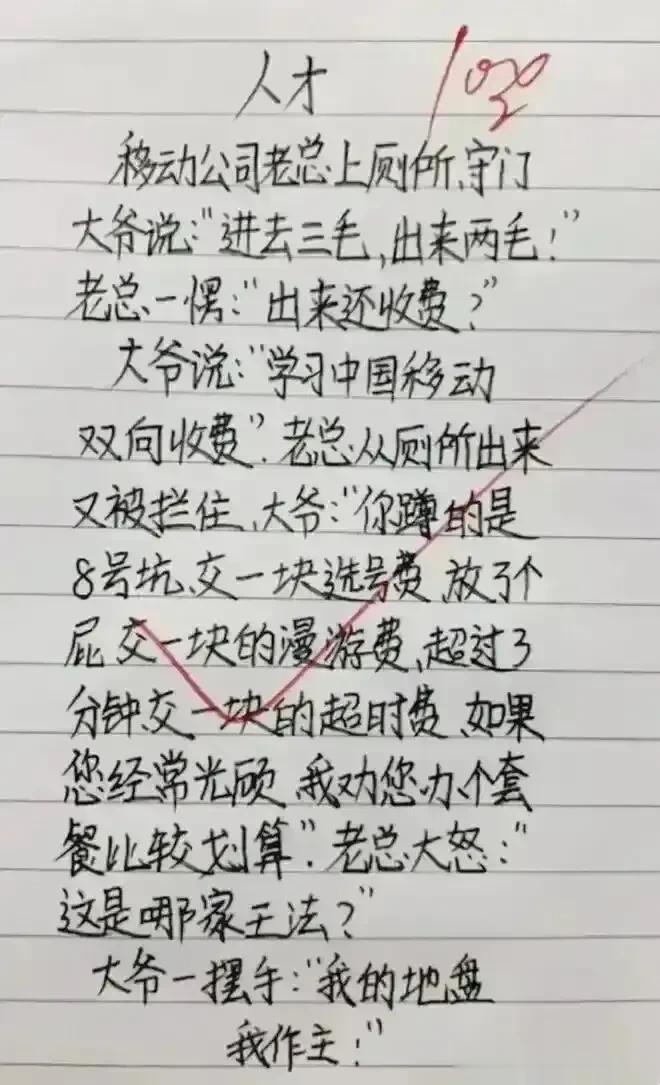 人才
100
移动公司老总上厕所、守门
大爷说:"进去三毛,出来两毛!"
老总一愣:"出来还收费?"
大爷说:"学习中国移动
双向收费"。老总从厕所出来
又被拦住、大爷:"你蹲的是
8号坑、交一块选号费、放了个
屁交一块的漫游费、超过3
分钟交一块的超时费、如果
您经常光顾、我劝您办个套
餐比较划算"。老总大怒:"
这是哪家王法?"
大爷一摆手:"我的地盘
我作主!"